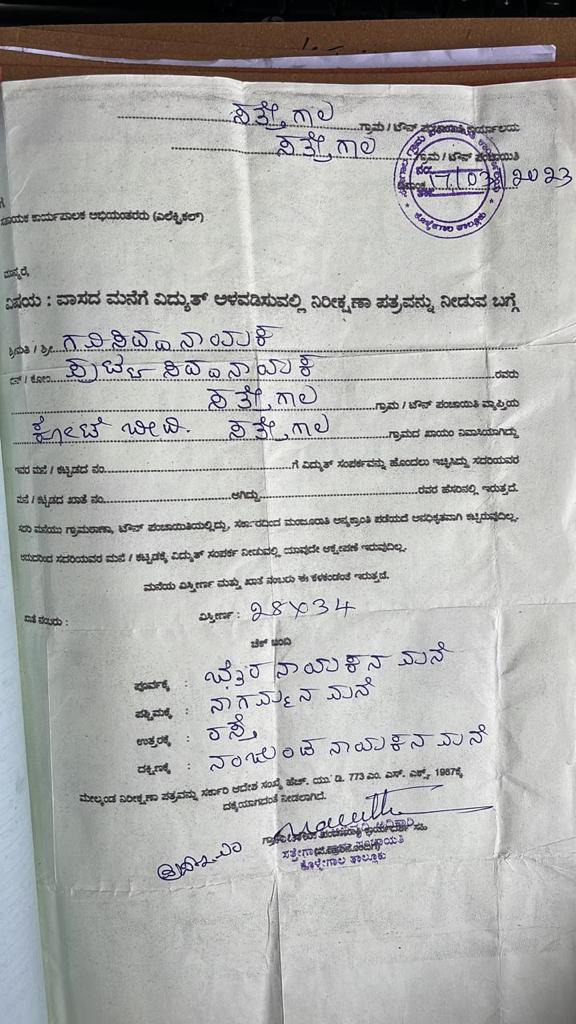 ಸತ್ತೇಗಾಲ ಗ್ರಾಮ / ಟೌನ್ ಪಂಚಾಯಿತಿ ಕಾರ್ಯಾಲಯ
ಸತ್ತೇಗಾಲ ಗ್ರಾಮ / ಟೌನ್ ಪಂಚಾಯಿತಿ
17/03/2023
ಕೊಳ್ಳೇಗಾಲ ತಾಲ್ಲೂಕು
ಸಹಾಯಕ ಕಾರ್ಯಪಾಲಕ ಅಭಿಯಂತರರು (ಎಲೆಕ್ಟ್ರಿಕಲ್)
ಮಾನ್ಯರೆ,
ವಿಷಯ : ವಾಸದ ಮನೆಗೆ ವಿದ್ಯುತ್ ಅಳವಡಿಸುವಲ್ಲಿ ನಿರೀಕ್ಷಣಾ ಪತ್ರವನ್ನು ನೀಡುವ ಬಗ್ಗೆ
ಶ್ರೀಮತಿ / ಶ್ರೀ ನಾಯಕ
ಬಿನ್ / ಕೋಂ ನಾಯಕ ರವರು
ಸತ್ತೇಗಾಲ ಗ್ರಾಮ / ಟೌನ್ ಪಂಚಾಯಿತಿ ವ್ಯಾಪ್ತಿಯ
ಕೋಟೆ ಬೀದಿ. ಸತ್ತೇಗಾಲ ಗ್ರಾಮದ ಖಾಯಂ ನಿವಾಸಿಯಾಗಿದ್ದು
ಇವರ ಮನೆ / ಕಟ್ಟಡದ ನಂ. ಗೆ ವಿದ್ಯುತ್ ಸಂಪರ್ಕವನ್ನು ಹೊಂದಲು ಇಚ್ಛಿಸಿದ್ದು ಸದರಿಯವರ
ಮನೆ / ಕಟ್ಟಡದ ಖಾತೆ ನಂ. ಆಗಿದ್ದು ರವರ ಹೆಸರಿನಲ್ಲಿ ಇರುತ್ತದೆ.
ಸದರಿ ಮನೆಯು ಗ್ರಾಮಠಾಣಾ, ಟೌನ್ ಪಂಚಾಯಿತಿಯಲ್ಲಿದ್ದು, ಸರ್ಕಾರದಿಂದ ಮಂಜೂರಾತಿ ಪಡೆಯದೆ ಅನಧಿಕೃತವಾಗಿ ಕಟ್ಟಿರುವುದಿಲ್ಲ.
ಆದುದರಿಂದ ಸದರಿಯವರ ಮನೆ / ಕಟ್ಟಡಕ್ಕೆ ವಿದ್ಯುತ್ ಸಂಪರ್ಕ ನೀಡುವಲ್ಲಿ ಯಾವುದೇ ಆಕ್ಷೇಪಣೆ ಇರುವುದಿಲ್ಲ.
ಮನೆಯ ವಿಸ್ತೀರ್ಣ ಮತ್ತು ಖಾತೆ ನಂಬರು ಈ ಕೆಳಕಂಡಂತೆ ಇರುತ್ತದೆ.
ಖಾತೆ ನಂಬರು : ವಿಸ್ತೀರ್ಣ : 28x34
ಚೆಕ್ ಬಂದಿ
ಪೂರ್ವಕ್ಕೆ : ನಾಯಕನ ಮನೆ
ಪಶ್ಚಿಮಕ್ಕೆ : ನಾಗಮ್ಮನ ಮನೆ
ಉತ್ತರಕ್ಕೆ : ರಸ್ತೆ
ದಕ್ಷಿಣಕ್ಕೆ : ನಂಜುಂಡ ನಾಯಕನ ಮನೆ
ಮೇಲ್ಕಂಡ ನಿರೀಕ್ಷಣಾ ಪತ್ರವನ್ನು ಸರ್ಕಾರಿ ಆದೇಶ ಸಂಖ್ಯೆ ಹೆಚ್. ಯು. ಡಿ. 773 ಎಂ. ಎನ್. ಎಕ್ಸ್. 1987ಕ್ಕೆ
ದಕ್ಕೆಯಾಗದಂತೆ ನೀಡಲಾಗಿದೆ.
ಕೊಳ್ಳೇಗಾಲ ತಾಲ್ಲೂಕು